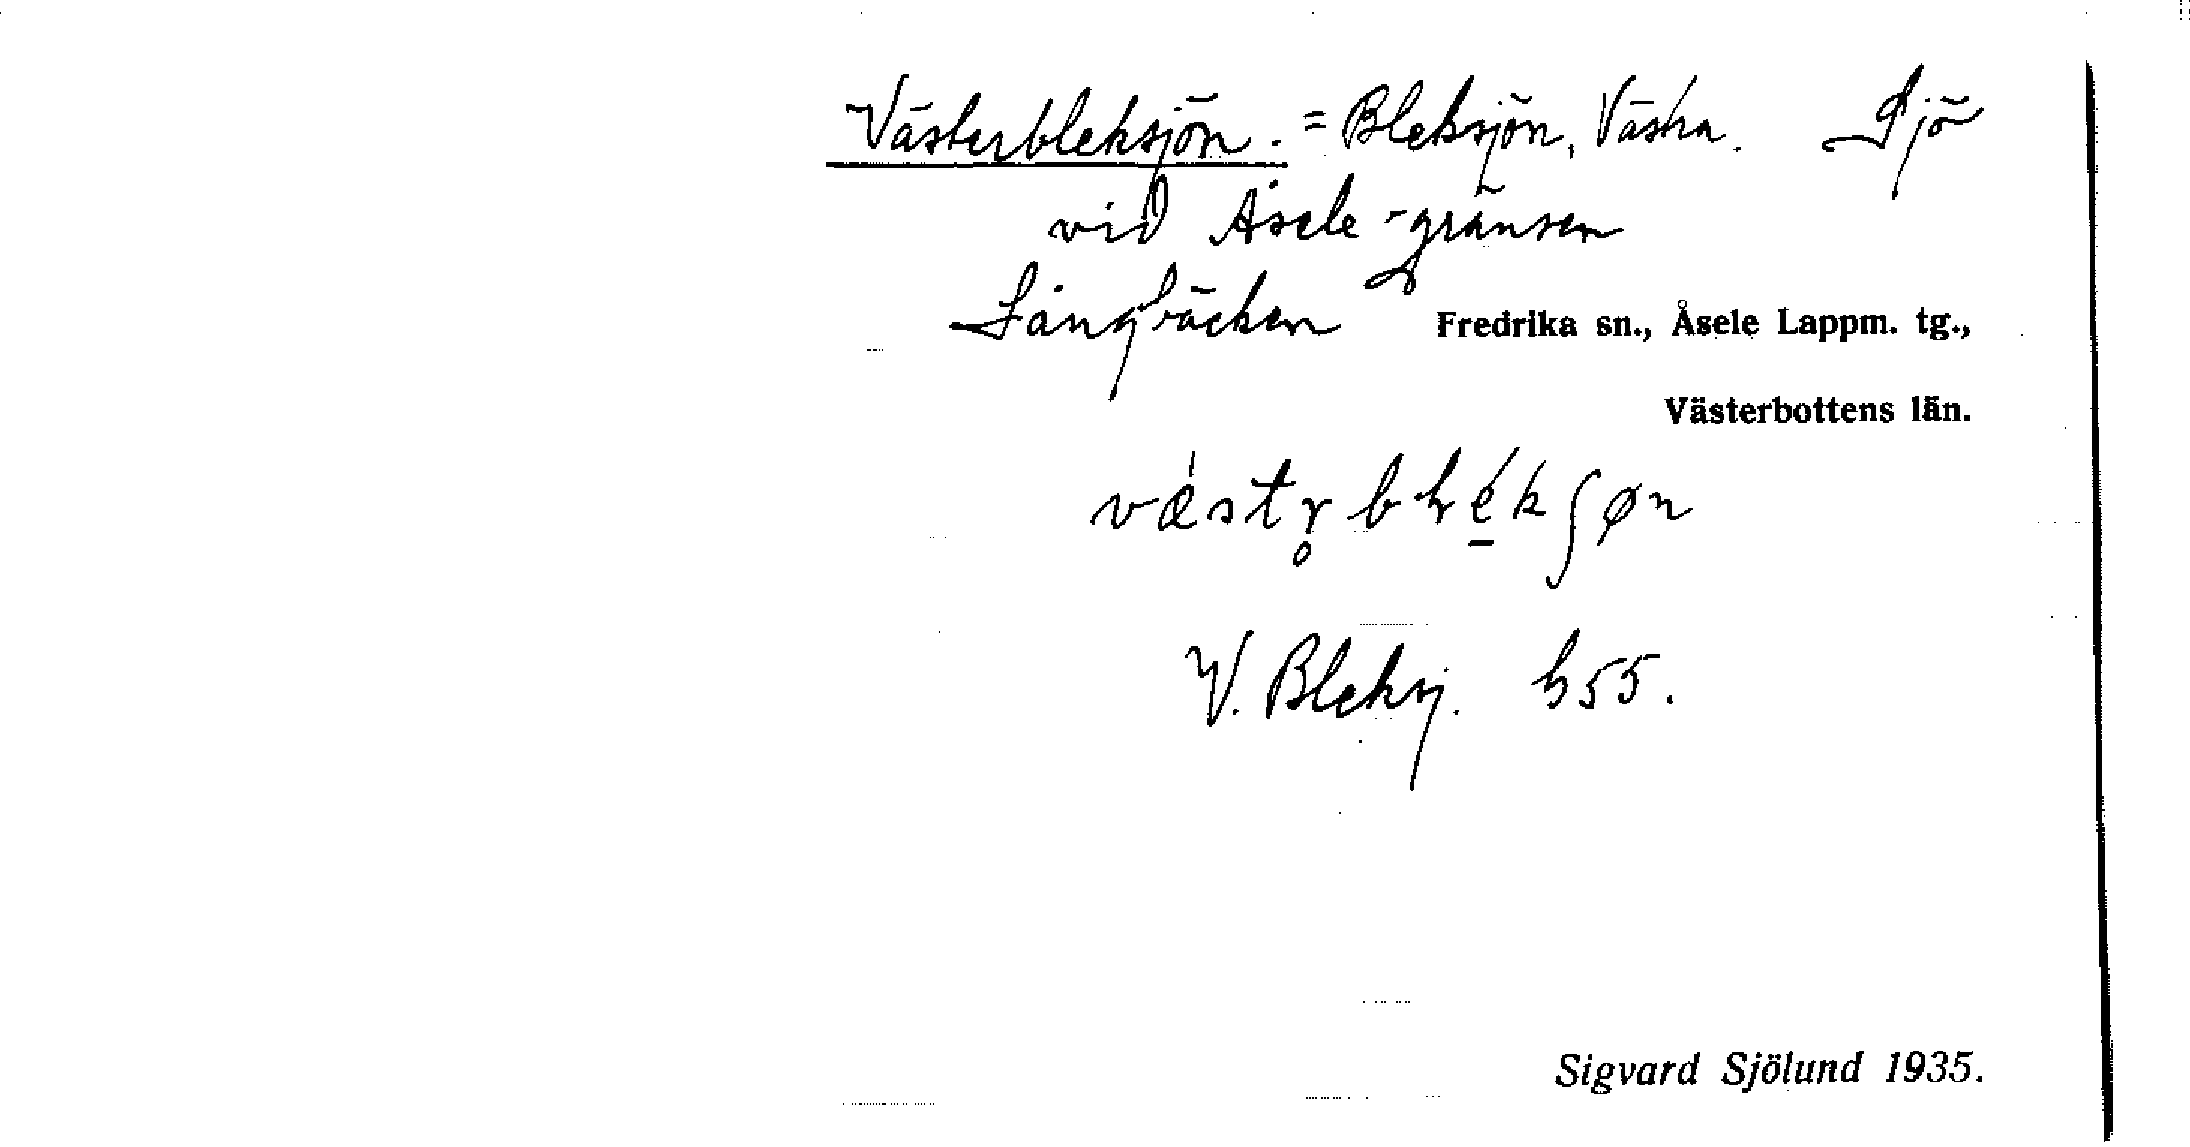 Västerbleksjön. = Bleksjön, Västra. Sjö
vid Åsele-gränsen
Långbäcken Fredrika sn., Åsele Lappm. tg.,
Västerbottens län.
V. Bleksj. h55.
Sigvard Sjölund 1935.